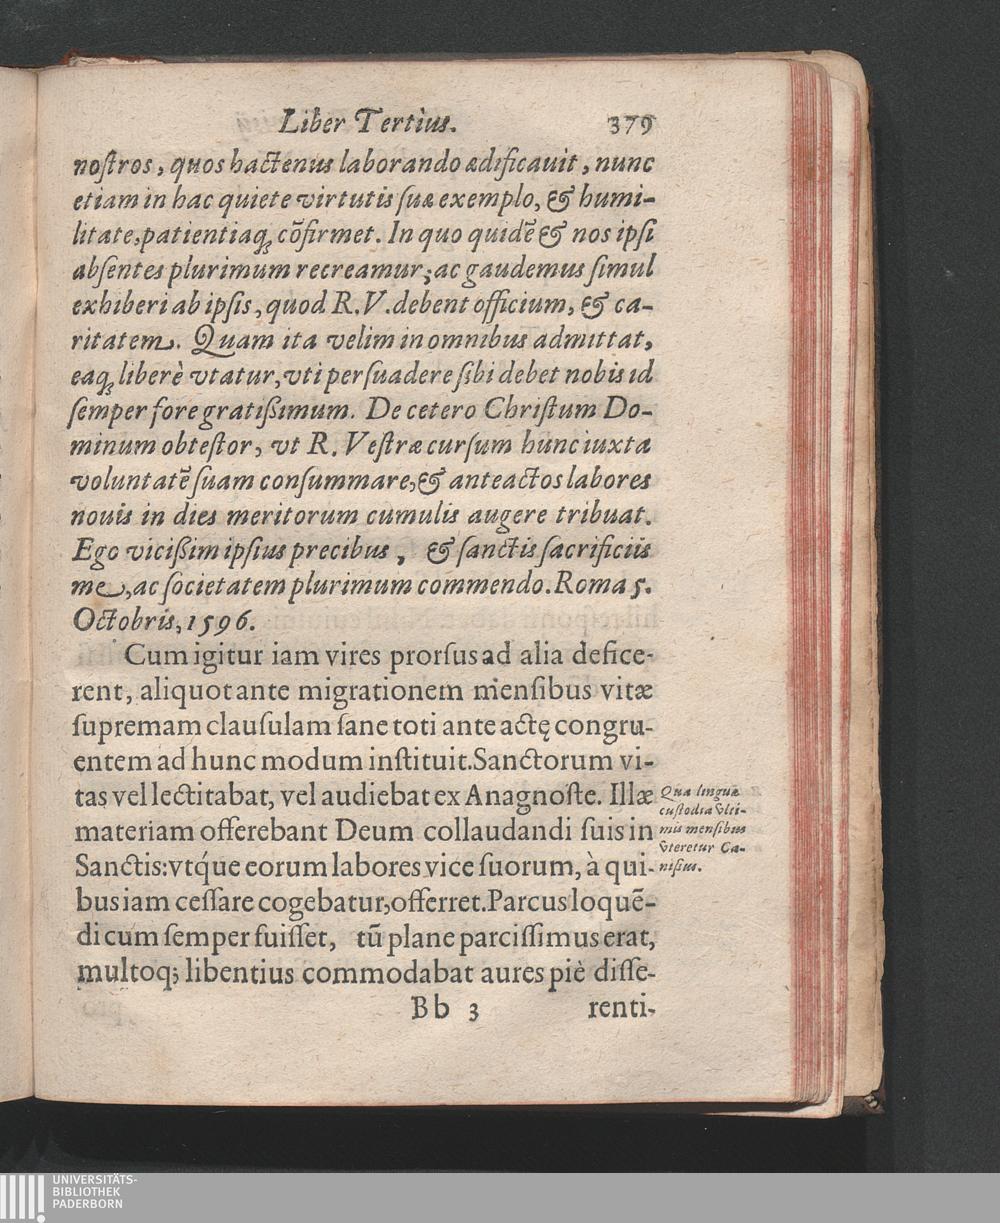 Liber Tertius. 379
nostros, quos hactenus laborando ædificauit, nunc
etiam in hac quiete virtutis suæ exemplo, & humi-
litate, patientiaq́; cōfirmet. In quo quidē & nos ipsi
absentes plurimum recreamur; ac gaudemus simul
exhiberi ab ipsis, quod R. V. debent officium, & ca-
ritatem. Quam ita velim in omnibus admittat,
eaq́; liberè vtatur, vti persuadere sibi debet nobis id
semper fore gratißimum. De cetero Christum Do-
minum obtestor, vt R. Vestræ cursum hunc iuxta
voluntatē suam consummare, & anteactos labores
nouis in dies meritorum cumulis augere tribuat.
Ego vicißim ipsius precibus, & sanctis sacrificiis
me, ac societatem plurimum commendo. Roma 5.
Octobris, 1596.
Cum igitur iam vires prorsus ad alia defice-
rent, aliquot ante migrationem mensibus vitæ
supremam clausulam sane toti ante actę congru-
entem ad hunc modum instituit. Sanctorum vi-
tas vel lectitabat, vel audiebat ex Anagnoste. Illæ
materiam offerebant Deum collaudandi suis in
Sanctis: vtq́ue eorum labores vice suorum, à qui-
bus iam cessare cogebatur, offerret. Parcus loquē-
di cum semper fuisset, tū plane parcissimus erat,
multoq; libentius commodabat aures piè disse-
Bb 3 renti-
Qua linguæ
custodia vlti-
mis mensibus
vteretur Ca-
nisius.
UNIVERSITÄTS-
BIBLIOTHEK
PADERBORN